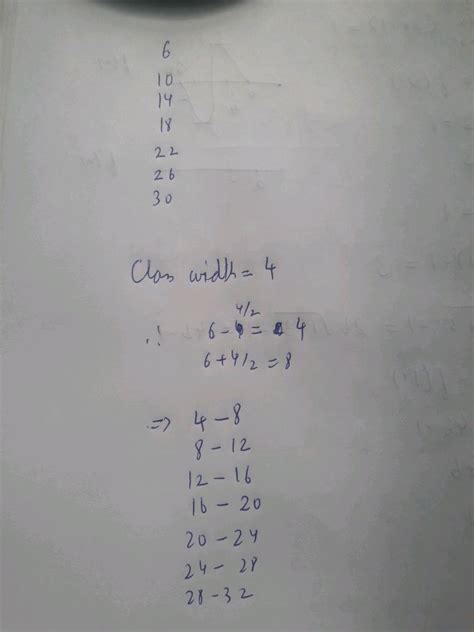 6
10
14
18
22
26
30
Class width = 4
∴ 6 - 4/2 = 4
6 + 4/2 = 8
⇒ 4 - 8
8 - 12
12 - 16
16 - 20
20 - 24
24 - 28
28 - 32